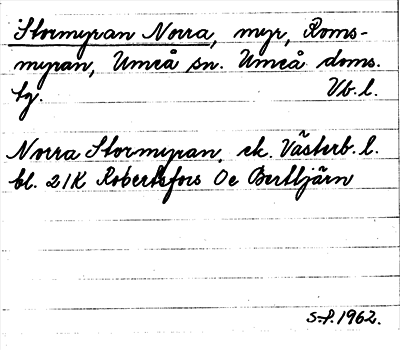 Stormyran Norra, myr, Roms-
myran, Umeå sn. Umeå doms.
tg. Vb. l.
Norra Stormyran, ek. Västerb. l.
bl. 21K Robertsfors Oc Bertljärn
S-f. 1962.